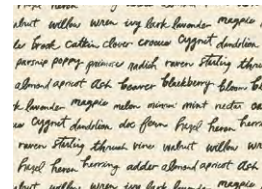 heron
walnut willow wren ivy lark lavender magpie
brook catkin clover crocus cygnet dandelion
parsnip poppy primrose radish raven starling thru
almond apricot Ash beaver blackberry bloom bl
k lavender magpie melon minnow mint nectar oa
cygnet dandelion doe fern hazel heron herri
raven starling thrush vine walnut willow wr
hazel heron herring adder almond apricot Ash
walnut willow wren ivy lark lavender magpie